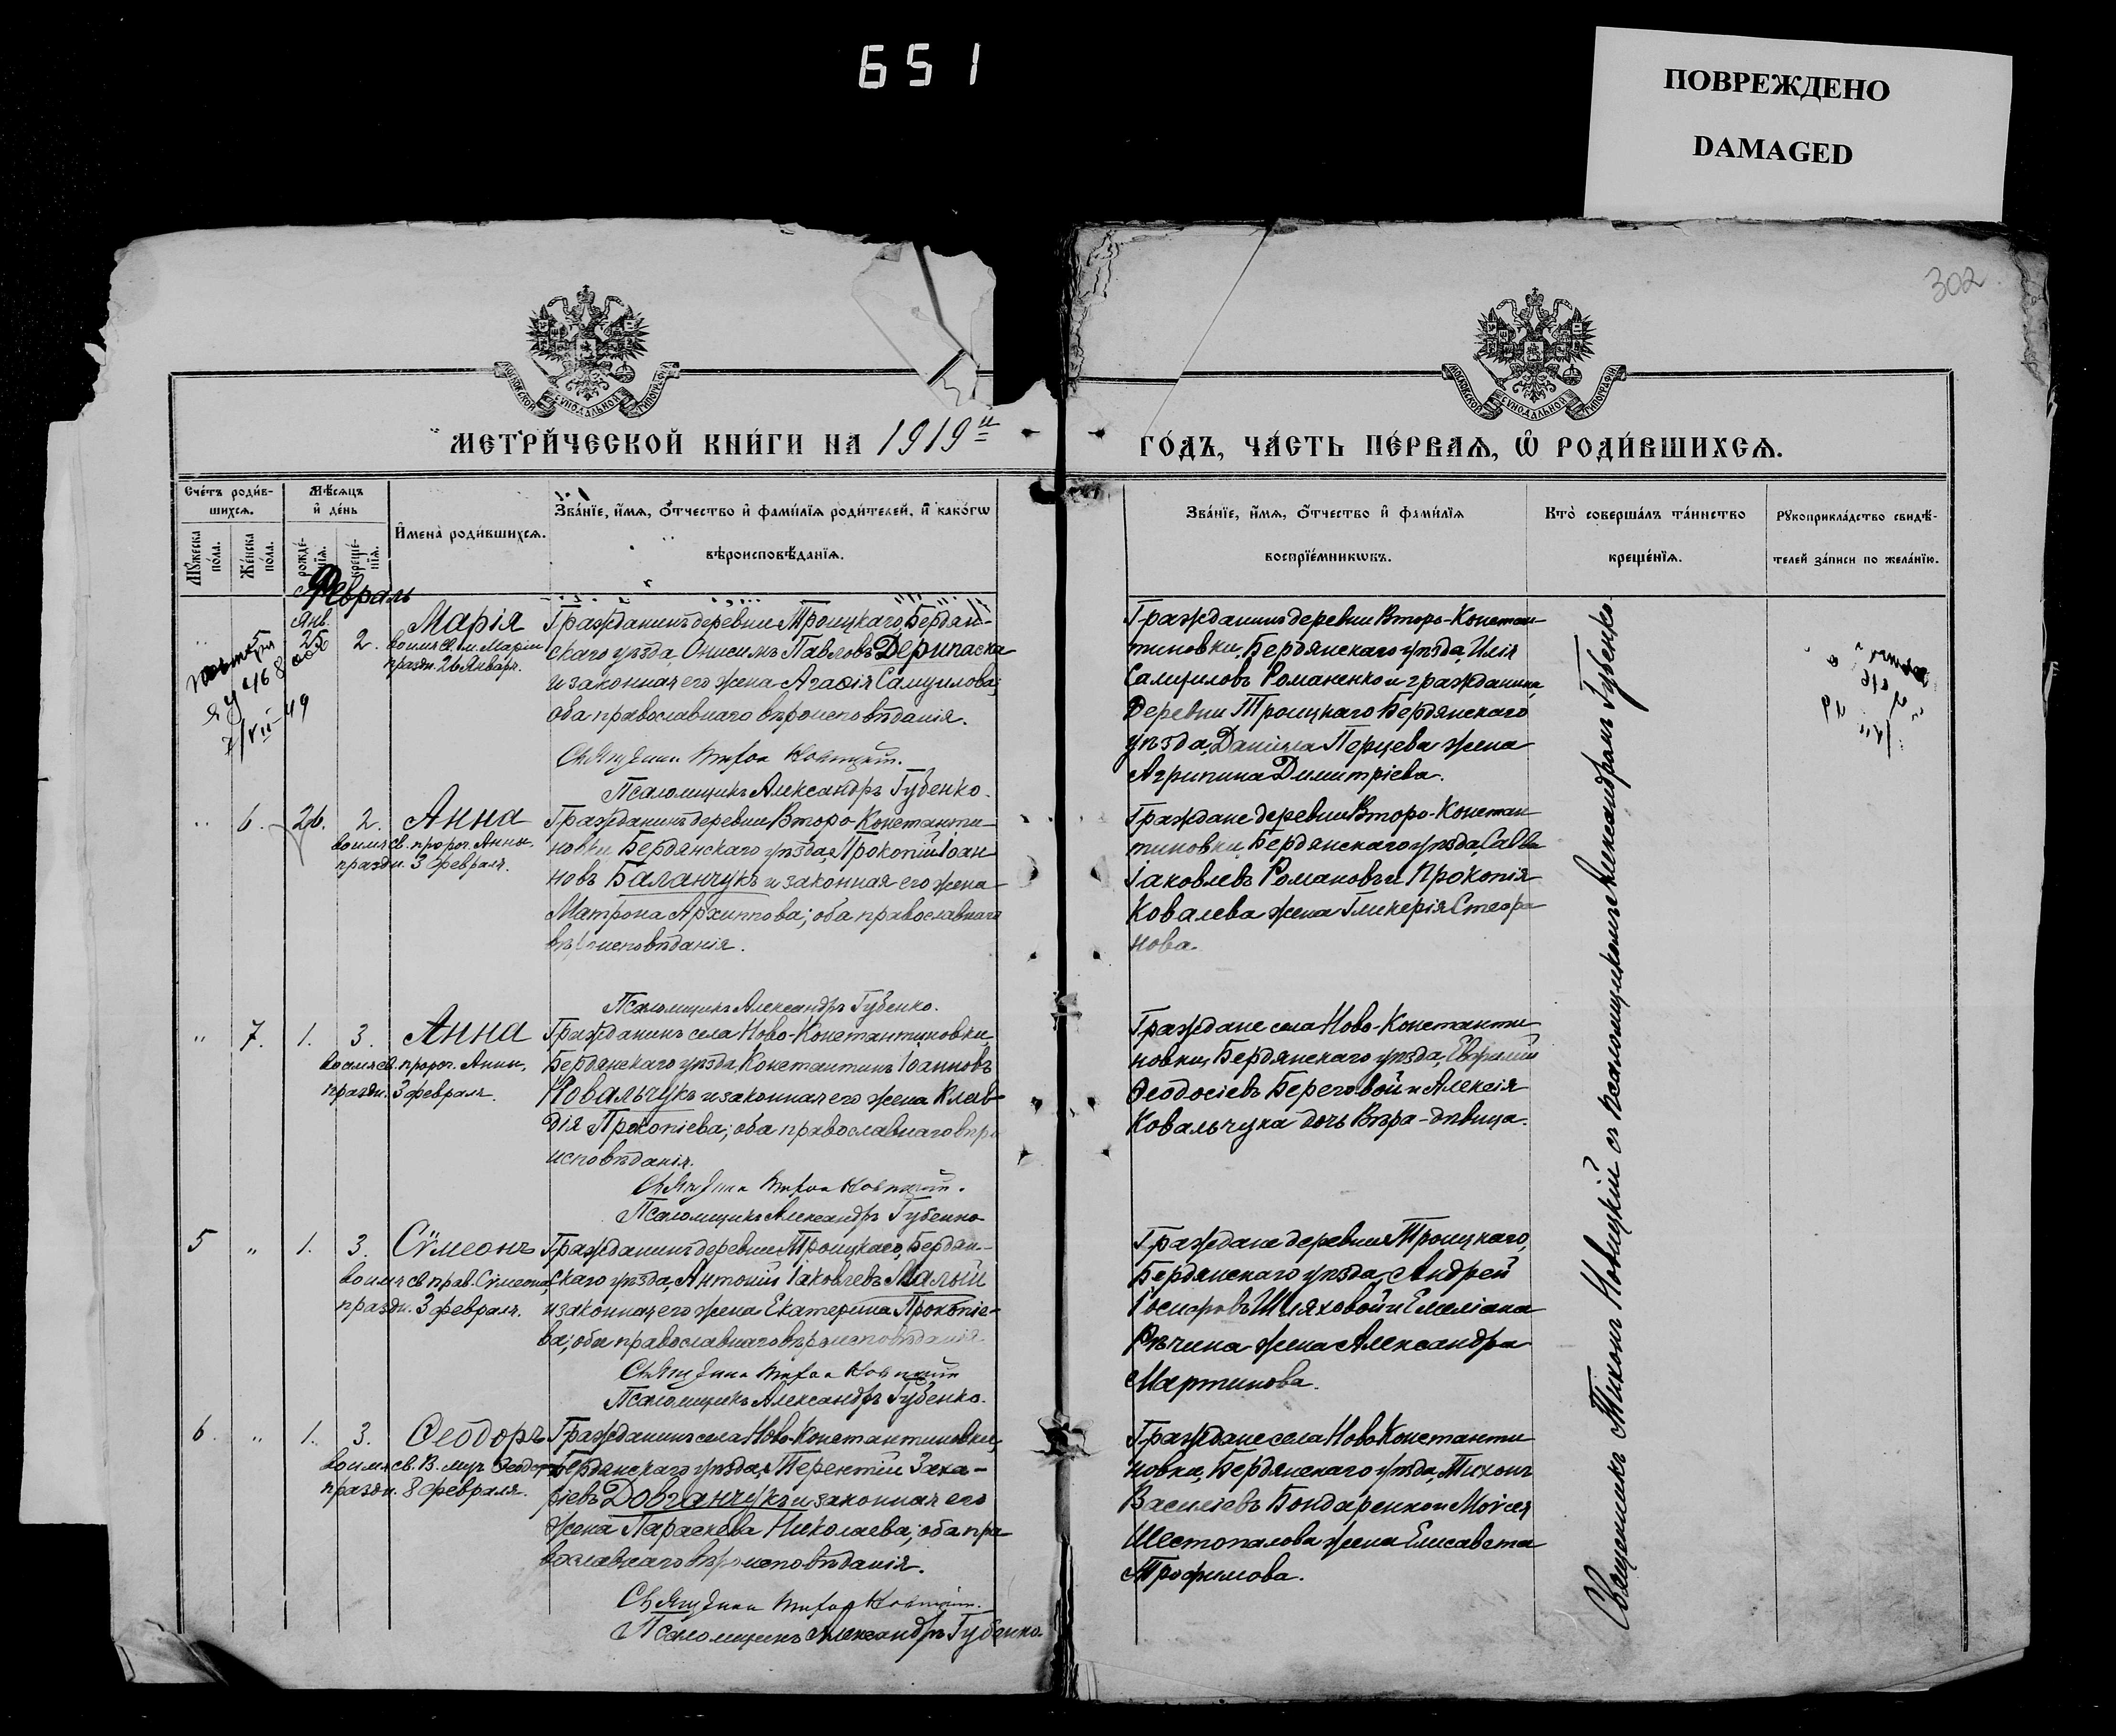 651
ПОВРЕЖДЕНО
DAMAGED
302
МОСКОВСКОЙ СѴНОДАЛЬНОЙ ТИПОГРАФІИ
МОСКОВСКОЙ СѴНОДАЛЬНОЙ ТИПОГРАФІИ
МЕТРИ́ЧЕСКОЙ КНИ́ГИ НА 1919й
ГО́ДЪ, ЧА́СТЬ ПЕ́РВАѦ, Ѡ҆ РОДИ́ВШИХСѦ.
Сче́тъ роди́в-
шихсѧ.
Мѣ́сѧцъ
и҆ де́нь
Мꙋ́жеска
по́ла.
Же́нска
по́ла.
рожде́-
нїѧ.
креще́-
нїѧ.
И҆мена̀ роди́вшихсѧ.
Зва́нїе, и҆́мѧ, ѻ҆́тчество и҆ фами́лїѧ роди́телей, и҆ како́гѡ
вѣроисповѣ́данїѧ.
Зва́нїе, и҆́мѧ, ѻ҆́тчество и҆ фами́лїѧ
воспрїе́мникѡвъ.
Кто̀ соверша́лъ та́инство
креще́нїѧ.
Рꙋкоприкла́дство свидѣ́-
телей за́писи по жела́нїю.
Февраль
Янв.
5 25 2. Марія
во имя св. м. Маріи
праздн. 26 Января.
Гражданинъ деревни Троицкаго, Бердян-
скаго уѣзда, Онисимъ Павловъ Дерипаска
и законная его жена Агаѳія Самуилова;
оба православнаго вѣроисповѣданія.
Священникъ Тихонъ Новицкій.
Псаломщикъ Александръ Губенко.
Гражданинъ деревни Второ-Констан-
тиновки, Бердянскаго уѣзда, Илія
Самуиловъ Романенко и гражданина
деревни Троицкаго Бердянскаго
уѣзда, Даніила Перцева жена
Агрипина Димитріева.
" 6. 26. 2. Анна
во имя св. пророч. Анны,
праздн. 3 февраля.
Гражданинъ деревни Второ-Константи-
новки Бердянскаго уѣзда, Прокопій Іоан-
новъ Баланчукъ и законная его жена
Матрона Архиппова; оба православнаго
вѣроисповѣданія.
Псаломщикъ Александръ Губенко.
Граждане деревни Второ-Констан-
тиновки, Бердянскаго уѣзда, Савва
Іаковлевъ Романовъ и Прокопія
Ковалева жена Гликерія Стефа-
нова.
" 7. 1. 3. Анна
во имя св. пророч. Анны,
праздн. 3 февраля.
Гражданинъ села Ново-Константиновки,
Бердянскаго уѣзда, Константинъ Іоанновъ
Ковальчукъ и законная его жена Клав-
дія Прокопіева; оба православнаго вѣро
исповѣданія.
Священникъ Тихонъ Новицкій.
Псаломщикъ Александръ Губенко
Граждане села Ново-Константи-
новки, Бердянскаго уѣзда, Евфимій
Ѳеодосіевъ Береговой и Алексія
Ковальчука дочь Вѣра-дѣвица.
5 " 1. 3. Сѵмеонъ
во имя св. прав. Сѵмеона,
праздн. 3 февраля.
Гражданинъ деревни Троицкаго, Бердян-
скаго уѣзда, Антоній Іаковлевъ Малый
и законная его жена Екатерина Прокопіе-
ва; оба православнаго вѣроисповѣданія
Священникъ Тихонъ Новицкій
Псаломщикъ Александръ Губенко.
Граждане деревни Троицкаго,
Бердянскаго уѣзда, Андрей
Іосифовъ Шляховой и Емеліана
Рѣчина жена Александра
Мартинова.
6. " 1. 3. Ѳеодоръ
во имя св. В. муч. Ѳеодора
праздн. 8 февраля.
Гражданинъ села Ново-Константиновки,
Бердянскаго уѣзда, Терентій Заха-
ріевъ Довганчукъ и законная его
жена Параскева Николаева; оба пра-
вославнаго вѣроисповѣданія.
Священникъ Тихонъ Новицкій.
Псаломщикъ Александръ Губенко.
Граждане села Ново Константи-
новки, Бердянскаго уѣзда, Тихонъ
Василіевъ Бондаренко и Моѵсея
Шестопалова жена Елисавета
Трофимова.
Священникъ Тихонъ Новицкій съ псаломщикомъ Александромъ Губенко